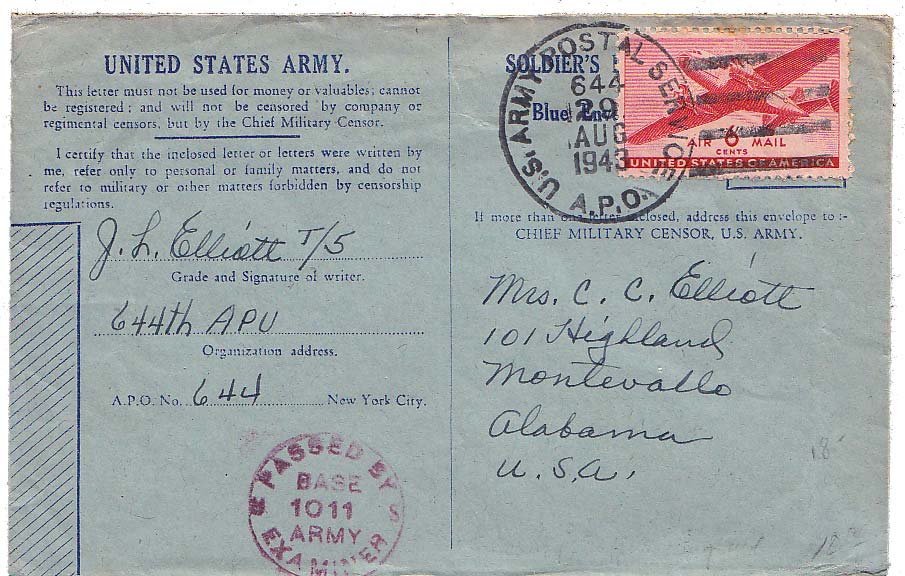 UNITED STATES ARMY.
This letter must not be used for money or valuables; cannot
be registered; and will not be censored by company or
regimental censors, but by the Chief Military Censor.
I certify that the inclosed letter or letters were written by
me, refer only to personal or family matters, and do not
refer to military or other matters forbidden by censorship
regulations.
J. L. Elliott T/5
Grade and Signature of writer.
644th APU
Organization address.
A.P.O. No. 644 New York City.
PASSED BY
BASE
1011
ARMY
EXAMINER
U.S.
SOLDIER'S
Blue
U.S. ARMY POSTAL SERVICE
644
29
AUG
1943
A.P.O.
AIR 6 MAIL
CENTS
UNITED STATES OF AMERICA
If more than one letter inclosed, address this envelope to :-
CHIEF MILITARY CENSOR, U.S. ARMY.
Mrs. C. C. Elliott
101 Highland
Montevallo
Alabama
U.S.A.